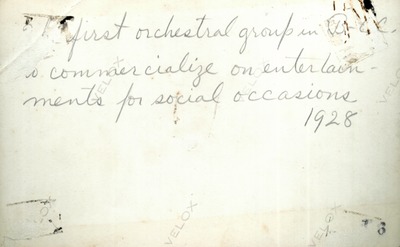 first orchestral group in
o commercialize on entertain-
ments for social occasions
1928
VELOX
VELOX
VELOX
VELOX
VELOX